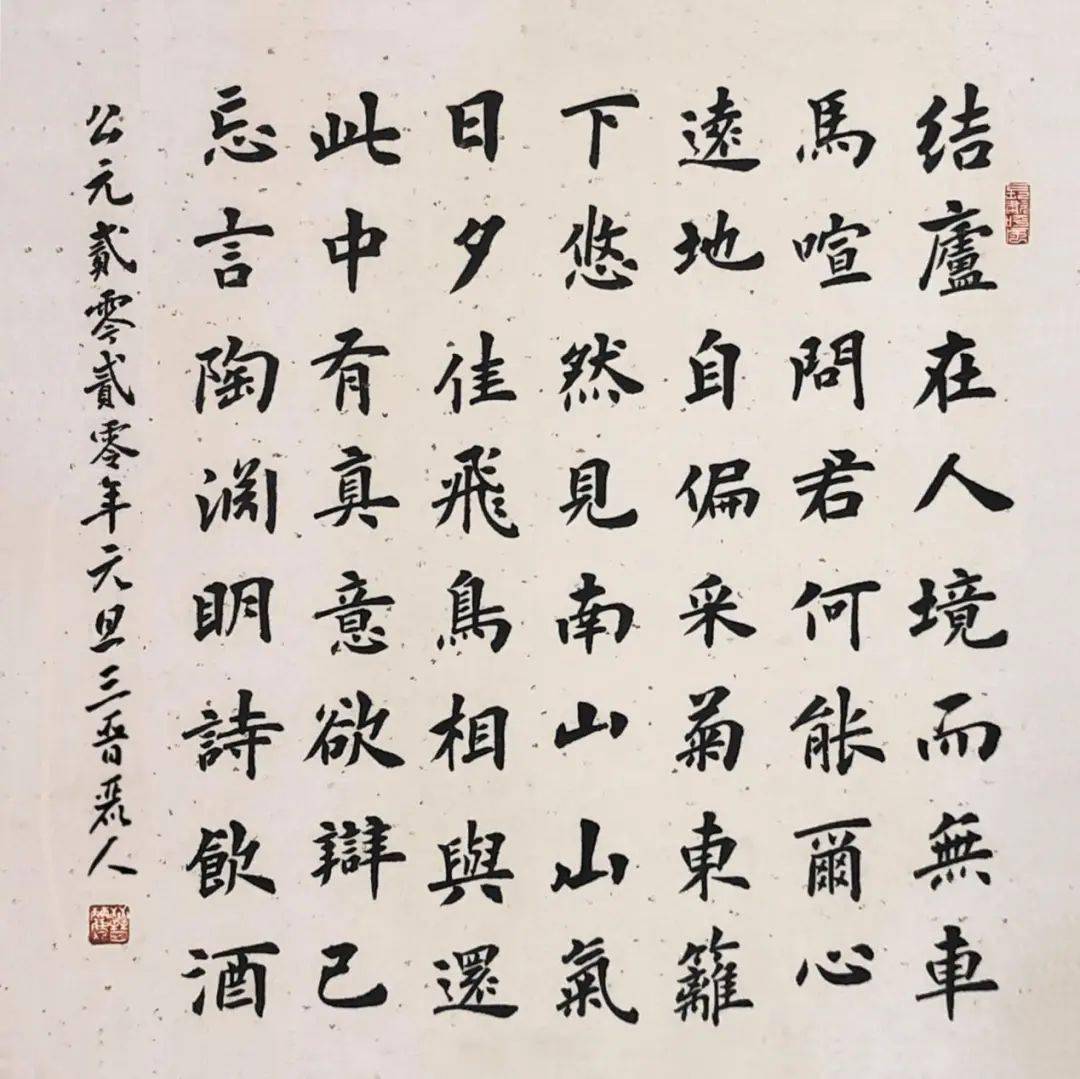 结廬在人境而無車
馬喧問君何能爾心
遠地自偏采菊東籬
下悠然見南山山氣
日夕佳飛鳥相與還
此中有真意欲辯已
忘言陶渊明詩飲酒
公元貳零貳零年元旦三晋人